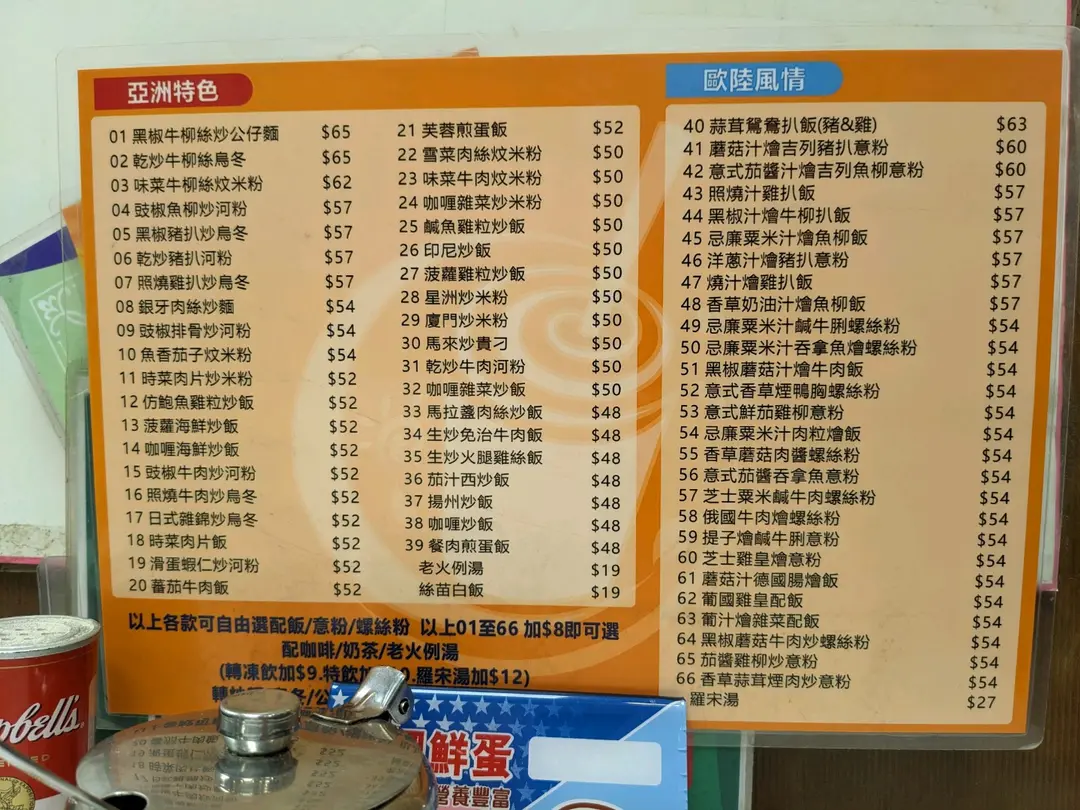 亞洲特色
01 黑椒牛柳絲炒公仔麵 $65
02 乾炒牛柳絲烏冬 $65
03 味菜牛柳絲炆米粉 $62
04 豉椒魚柳炒河粉 $57
05 黑椒豬扒炒烏冬 $57
06 乾炒豬扒河粉 $57
07 照燒雞扒炒烏冬 $57
08 銀牙肉絲炒麵 $54
09 豉椒排骨炒河粉 $54
10 魚香茄子炆米粉 $54
11 時菜肉片炒米粉 $52
12 仿鮑魚雞粒炒飯 $52
13 菠蘿海鮮炒飯 $52
14 咖喱海鮮炒飯 $52
15 豉椒牛肉炒河粉 $52
16 照燒牛肉炒烏冬 $52
17 日式雜錦炒烏冬 $52
18 時菜肉片飯 $52
19 滑蛋蝦仁炒河粉 $52
20 蕃茄牛肉飯 $52
21 芙蓉煎蛋飯 $52
22 雪菜肉絲炆米粉 $50
23 味菜牛肉炆米粉 $50
24 咖喱雜菜炒米粉 $50
25 鹹魚雞粒炒飯 $50
26 印尼炒飯 $50
27 菠蘿雞粒炒飯 $50
28 星洲炒米粉 $50
29 廈門炒米粉 $50
30 馬來炒貴刁 $50
31 乾炒牛肉河粉 $50
32 咖喱雜菜炒飯 $50
33 馬拉盞肉絲炒飯 $48
34 生炒免治牛肉飯 $48
35 生炒火腿雞絲飯 $48
36 茄汁西炒飯 $48
37 揚州炒飯 $48
38 咖喱炒飯 $48
39 餐肉煎蛋飯 $48
老火例湯 $19
絲苗白飯 $19
以上各款可自由選配飯/意粉/螺絲粉 以上01至66 加$8即可選
配咖啡/奶茶/老火例湯
(轉凍飲加$9.特飲加 0.羅宋湯加$12)
歐陸風情
40 蒜茸鴛鴦扒飯(豬&雞) $63
41 蘑菇汁燴吉列豬扒意粉 $60
42 意式茄醬汁燴吉列魚柳意粉 $60
43 照燒汁雞扒飯 $57
44 黑椒汁燴牛柳扒飯 $57
45 忌廉粟米汁燴魚柳飯 $57
46 洋蔥汁燴豬扒意粉 $57
47 燒汁燴雞扒飯 $57
48 香草奶油汁燴魚柳飯 $57
49 忌廉粟米汁鹹牛脷螺絲粉 $54
50 忌廉粟米汁吞拿魚燴螺絲粉 $54
51 黑椒蘑菇汁燴牛肉飯 $54
52 意式香草煙鴨胸螺絲粉 $54
53 意式鮮茄雞柳意粉 $54
54 忌廉粟米汁肉粒燴飯 $54
55 香草蘑菇肉醬螺絲粉 $54
56 意式茄醬吞拿魚意粉 $54
57 芝士粟米鹹牛肉螺絲粉 $54
58 俄國牛肉燴螺絲粉 $54
59 提子燴鹹牛脷意粉 $54
60 芝士雞皇燴意粉 $54
61 蘑菇汁德國腸燴飯 $54
62 葡國雞皇配飯 $54
63 葡汁燴雜菜配飯 $54
64 黑椒蘑菇牛肉炒螺絲粉 $54
65 茄醬雞柳炒意粉 $54
66 香草蒜茸煙肉炒意粉 $54
羅宋湯 $27
pbell's
鮮蛋
營養豐富